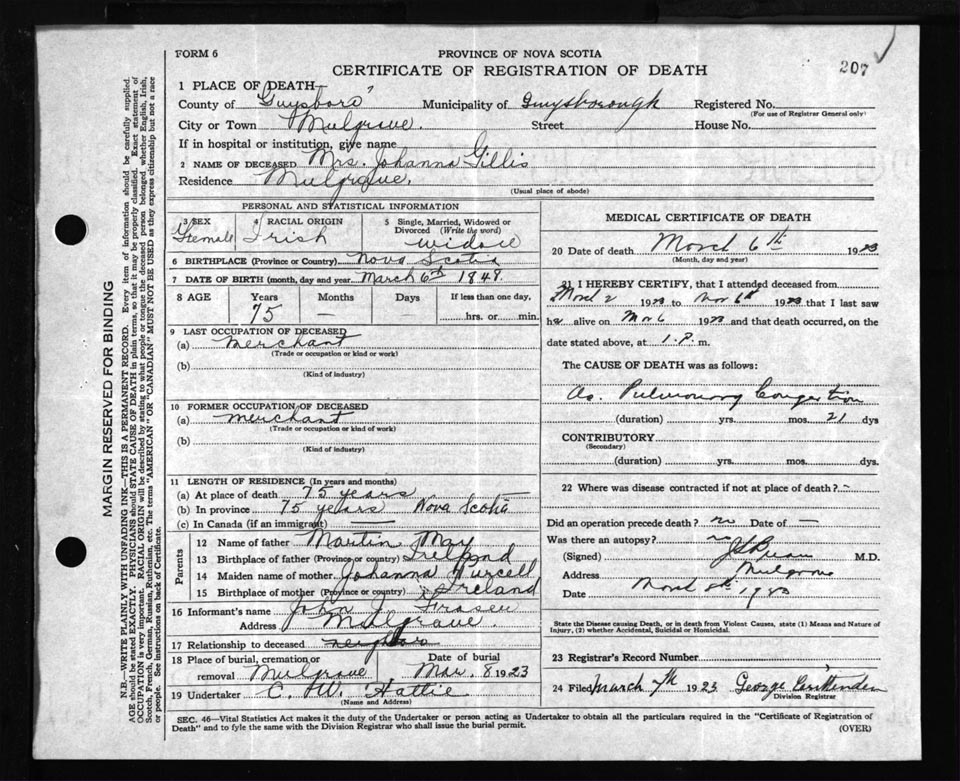 FORM 6
PROVINCE OF NOVA SCOTIA
CERTIFICATE OF REGISTRATION OF DEATH
207
1 PLACE OF DEATH
County of Guysboro' Municipality of Guysborough Registered No.
(For use of Registrar General only)
City or Town Mulgrave. Street House No.
If in hospital or institution, give name
2 NAME OF DECEASED Mrs. Johanna Gillis
Residence Mulgrave.
(Usual place of abode)
PERSONAL AND STATISTICAL INFORMATION
3 SEX 4 RACIAL ORIGIN 5 Single, Married, Widowed or Divorced (Write the word)
Female Irish widow
6 BIRTHPLACE (Province or Country) Nova Scotia
7 DATE OF BIRTH (month, day and year) March 6th 1848.
8 AGE Years Months Days If less than one day,
75 — hrs. or min.
9 LAST OCCUPATION OF DECEASED
(a) merchant
(Trade or occupation or kind or work)
(b)
(Kind of industry)
10 FORMER OCCUPATION OF DECEASED
(a) merchant
(Trade or occupation or kind of work)
(b)
(Kind of industry)
11 LENGTH OF RESIDENCE (In years and months)
(a) At place of death 75 years
(b) In province 75 years Nova Scotia
(c) In Canada (if an immigrant) —
Parents
12 Name of father Martin May
13 Birthplace of father (Province or country) Ireland
14 Maiden name of mother Johanna Purcell
15 Birthplace of mother (Province or country) Ireland
16 Informant's name John J. Fraser
Address Mulgrave.
17 Relationship to deceased neighbor
18 Place of burial, cremation or removal Mulgrave Date of burial Mar. 8 1923
19 Undertaker C. W. Hattie
(Name and Address)
MEDICAL CERTIFICATE OF DEATH
20 Date of death March 6th 1923
(Month, day and year)
21 I HEREBY CERTIFY, that I attended deceased from
March 2 1923 to Mar 6th 1923 that I last saw
her alive on Mar 6 1923 and that death occurred, on the
date stated above, at 1.P. m.
The CAUSE OF DEATH was as follows:
Ac. Pulmonary Congestion
(duration) yrs. mos. 21 dys
CONTRIBUTORY
(Secondary)
(duration) yrs. mos. dys.
22 Where was disease contracted if not at place of death? -
Did an operation precede death? no Date of —
Was there an autopsy? no
(Signed) M.D.
Address Mulgrave
Date March 8th 1923
State the Disease causing Death, or in death from Violent Causes, state (1) Means and Nature of
Injury, (2) whether Accidental, Suicidal or Homicidal.
23 Registrar's Record Number
24 Filed March 7th 1923 George
Division Registrar
SEC. 46—Vital Statistics Act makes it the duty of the Undertaker or person acting as Undertaker to obtain all the particulars required in the "Certificate of Registration of
Death" and to fyle the same with the Division Registrar who shall issue the burial permit.
(OVER)
MARGIN RESERVED FOR BINDING
N.B.—WRITE PLAINLY WITH UNFADING INK—THIS IS A PERMANENT RECORD. Every item of information should be carefully supplied.
AGE should be stated EXACTLY. PHYSICIANS should STATE CAUSE OF DEATH in plain terms, so that it may be properly classified. Exact statement of
OCCUPATION is very important. RACIAL ORIGIN will be described by stating to what people or tongue the deceased person belonged whether English, Irish,
Scotch, French, German, Russian, Ruthenian, etc. The terms "AMERICAN" OR "CANADIAN" MUST NOT BE USED as they express citizenship but not a race
or people. See instructions on back of Certificate.